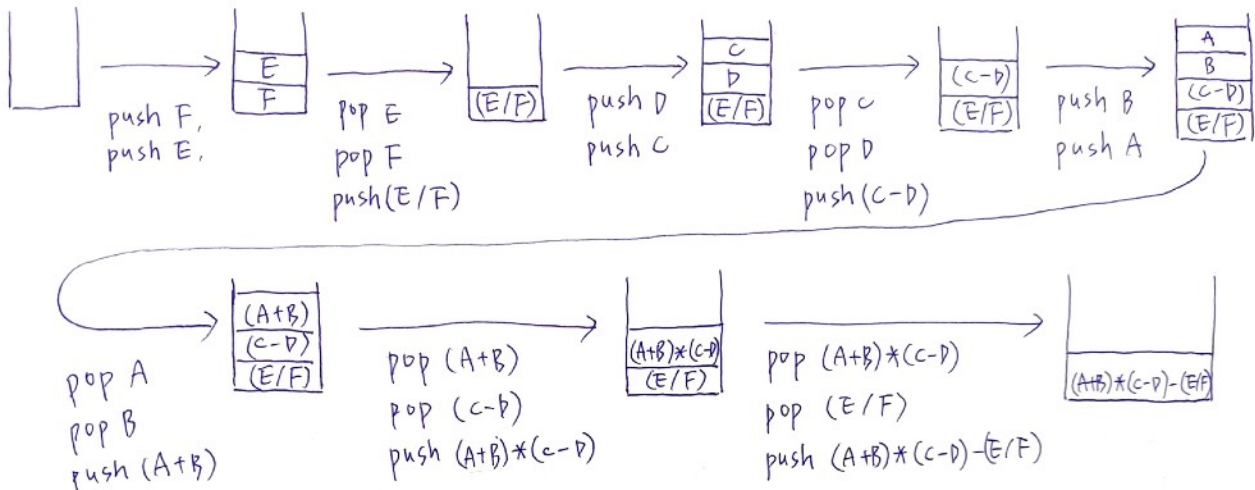 E
F
push F,
push E,
pop E
pop F
push(E/F)
(E/F)
push D
push C
C
D
(E/F)
pop C
pop D
push(C-D)
(C-D)
(E/F)
push B
push A
A
B
(C-D)
(E/F)
pop A
pop B
push (A+B)
(A+B)
(C-D)
(E/F)
pop (A+B)
pop (C-D)
push (A+B)*(C-D)
(A+B)*(C-D)
(E/F)
pop (A+B)*(C-D)
pop (E/F)
push (A+B)*(C-D)-(E/F)
(A+B)*(C-D)-(E/F)